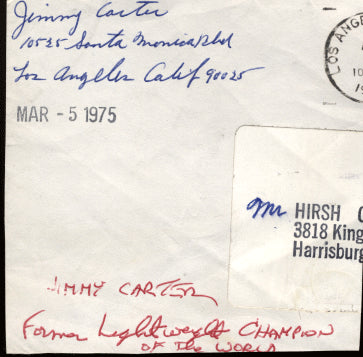 Jimmy Carter
10525 Santa Monica Blvd
Los Angeles Calif 90025
MAR - 5 1975
LOS ANGE
10
19
Mr HIRSH
3818 King
Harrisburg
JIMMY CARTER
Former Lightweight CHAMPION
OF THE WORLD